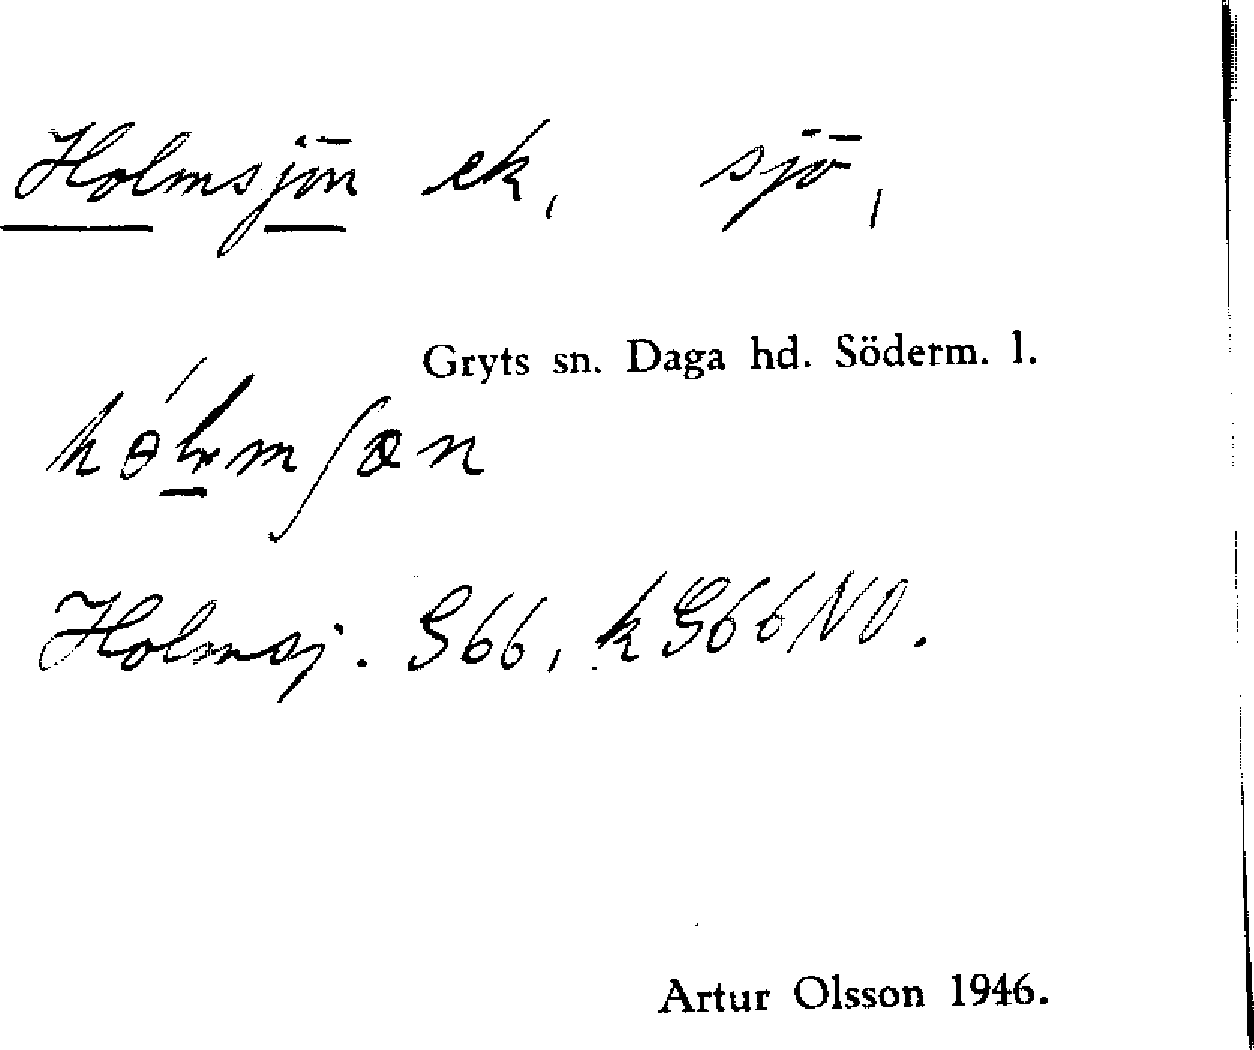 Holmsjön ek, sjö,
Gryts sn. Daga hd. Söderm. l.
Holmsj. G66, k G66NO.
Artur Olsson 1946.